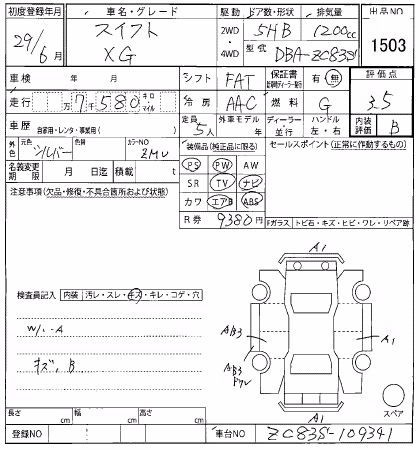 初度登録年月
29/6月
車名・グレード
スイフト
XG
駆動 ドア数・形状 排気量
2WD 4WD
5HB
1200cc
型式 DBA-ZC83S
出品NO
1503
車検 年 月
シフト FAT
保証書 有・無
評価点
3.5
走行 万7千580 キロ マイル
冷房 AAC
燃料 G
車歴 自家用・レンタ・事業用( )
定員 5人
外車モデル 年
ディーラー 並行
ハンドル 左・右
内装評価 B
外色 元色 シルバー 色替 カラーNO ZMU
名義変更期限 月 日迄 積載 t
装備品(純正品に限る)
セールスポイント(正常に作動するもの)
PS PW AW
SR TV ナビ
カワ エアB ABS
R券 9380円
注意事項(欠品・修復・不具合箇所および状態)
Fガラス トビ石・キズ・ヒビ・ワレ・リペア跡
検査員記入 内装 汚レ・スレ・キズ・キレ・コゲ・穴
W/-A
キズ、B
A1
AB3
A1
AB3
A1
スペア
長さ cm 幅 cm 高さ cm
登録NO
車台NO ZC83S-109341